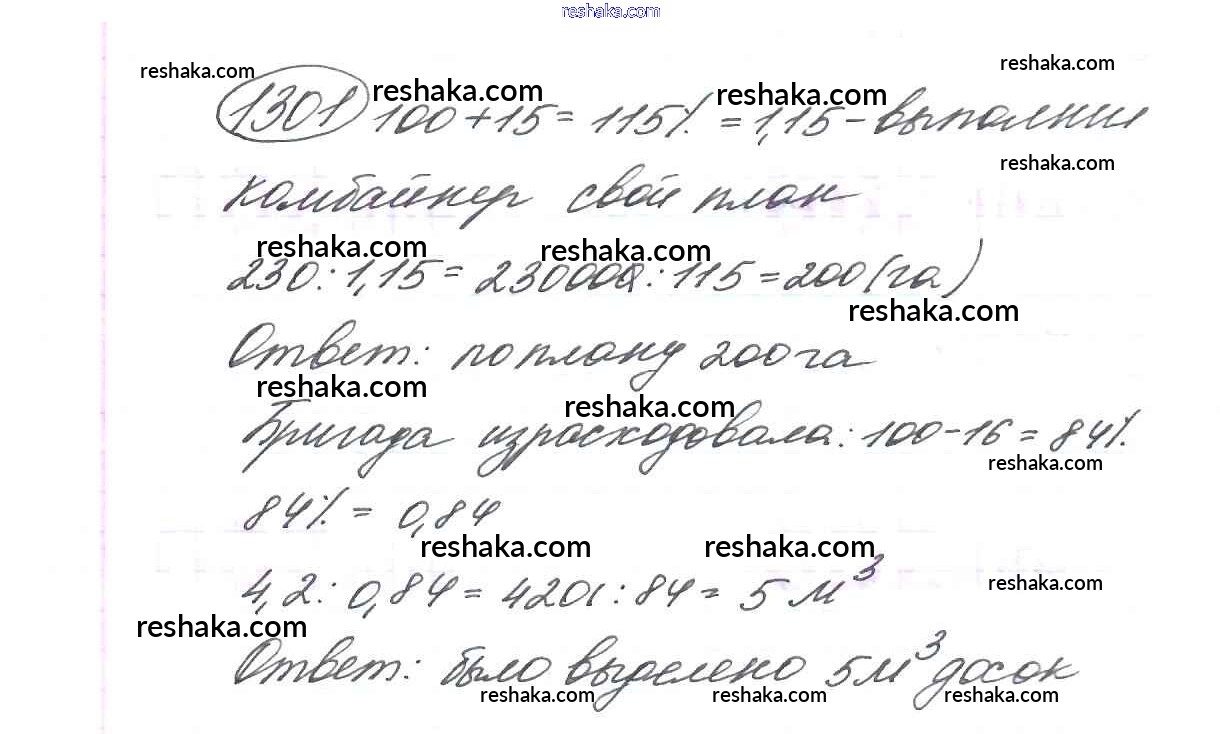 reshaka.com
reshaka.com reshaka.com reshaka.com reshaka.com
1301 100+15 = 115% = 1,15 - выполнил
reshaka.com
комбайнер свой план
reshaka.com reshaka.com
230 : 1,15 = 23000 : 115 = 200 (га)
reshaka.com
Ответ: по плану 200 га
reshaka.com reshaka.com
Бригада израсходовала: 100-16 = 84%
reshaka.com
84% = 0,84
reshaka.com reshaka.com
4,2 : 0,84 = 420 : 84 = 5 м³
reshaka.com
reshaka.com
Ответ: было выделено 5м³ досок
reshaka.com reshaka.com reshaka.com